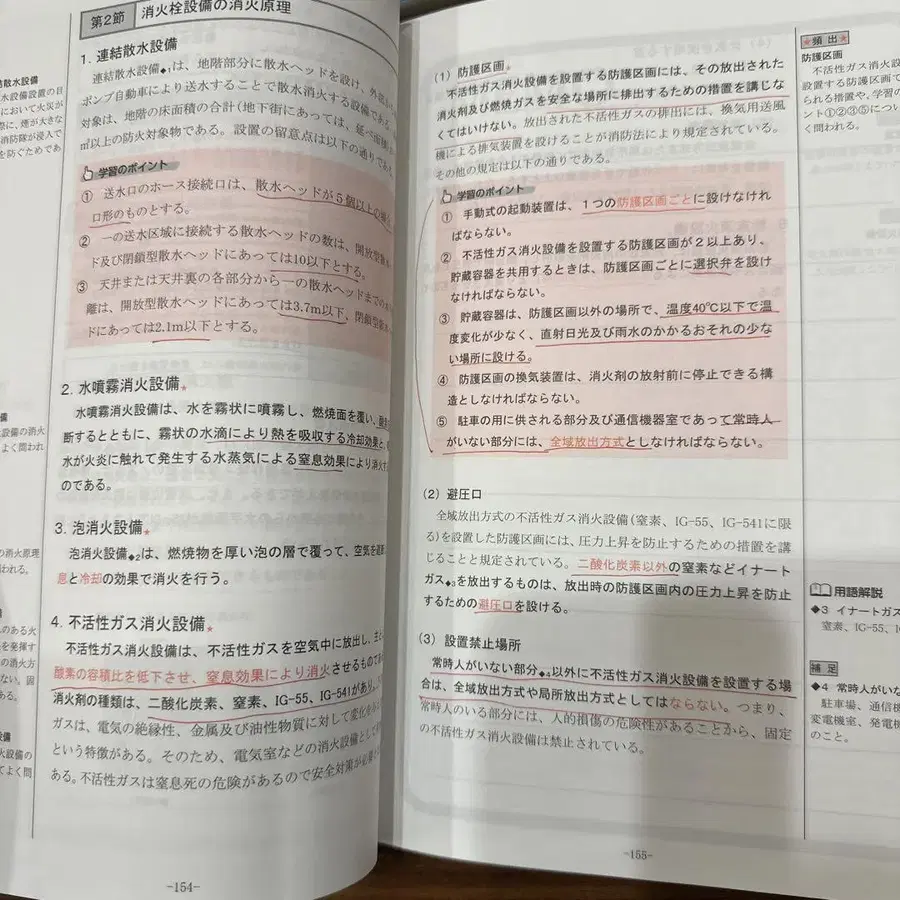 第2節 消火栓設備の消火原理
1. 連結散水設備
連結散水設備◆1は、地階部分に散水ヘッドを設け、外部
ポンプ自動車により送水することで散水消火する設備である
対象は、地階の床面積の合計(地下街にあっては、延べ面積
㎡以上の防火対象物である。設置の留意点は以下の通り
学習のポイント
① 送水口のホース接続口は、散水ヘッドが5個以上の
口形のものとする。
② 一の送水区域に接続する散水ヘッドの数は、開放型散
ド及び閉鎖型散水ヘッドにあっては10以下とする。
③ 天井または天井裏の各部分から一の散水ヘッドまでの
離は、開放型散水ヘッドにあっては3.7m以下、閉鎖型
ドにあっては2.1m以下とする。
2. 水噴霧消火設備★
水噴霧消火設備は、水を霧状に噴霧し、燃焼面を覆い、
断するとともに、霧状の水滴により熱を吸収する冷却効果と、
水が火炎に触れて発生する水蒸気による窒息効果により消火す
のである。
3. 泡消火設備★
泡消火設備◆2は、燃焼物を厚い泡の層で覆って、空気を遮
息と冷却の効果で消火を行う。
4. 不活性ガス消火設備★
不活性ガス消火設備は、不活性ガスを空気中に放出し、主
酸素の容積比を低下させ、窒息効果により消火させるものであ
消火剤の種類は、二酸化炭素、窒素、IG-55、IG-541があり、
ガスは、電気の絶縁性、金属及び油性物質に対して変化を
という特徴がある。そのため、電気室などの消火設備として
ある。不活性ガスは窒息死の危険があるので安全対策が必要
-154-
散水設備
水設備設置の目
において火災が
際に、煙が大きな
消防隊が浸入で
を防ぐためであ
備
火設備の消
よく問われ
の消火原理
われる。
のある火
を発揮す
の消火方
い。固
ある。
設備
火設備の
てよく問
(1) 防護区画★
不活性ガス消火設備を設置する防護区画には、その放出された
消火剤及び燃焼ガスを安全な場所に排出するための措置を講じな
くてはいけない。放出された不活性ガスの排出には、換気用送風
機による排気装置を設けることが消防法により規定されている。
その他の規定は以下の通りである。
学習のポイント
① 手動式の起動装置は、1つの防護区画ごとに設けなけれ
ばならない。
② 不活性ガス消火設備を設置する防護区画が2以上あり、
貯蔵容器を共用するときは、防護区画ごとに選択弁を設け
なければならない。
③ 貯蔵容器は、防護区画以外の場所で、温度40℃以下で温
度変化が少なく、直射日光及び雨水のかかるおそれの少な
い場所に設ける。
④ 防護区画の換気装置は、消火剤の放射前に停止できる構
造としなければならない。
⑤ 駐車の用に供される部分及び通信機器室であって常時人
がいない部分には、全域放出方式としなければならない。
(2) 避圧口
全域放出方式の不活性ガス消火設備(窒素、IG-55、IG-541に限
る)を設置した防護区画には、圧力上昇を防止するための措置を講
じることと規定されている。二酸化炭素以外の窒素などイナート
ガス◆3を放出するものは、放出時の防護区画内の圧力上昇を防止
するための避圧口を設ける。
(3) 設置禁止場所
常時人がいない部分◆4以外に不活性ガス消火設備を設置する場
合は、全域放出方式や局所放出方式としてはならない。つまり、
常時人のいる部分には、人的損傷の危険性があることから、固定
の不活性ガス消火設備は禁止されている。
-155-
★頻出★
防護区画
不活性ガス消火設
設置する防護区画で
られる措置や、学習の
ント①②③⑤につい
く問われる。
用語解説
◆3 イナートガス
窒素、IG-55、I
補足
◆4 常時人がいな
駐車場、通信機
変電機室、発電機
のこと。